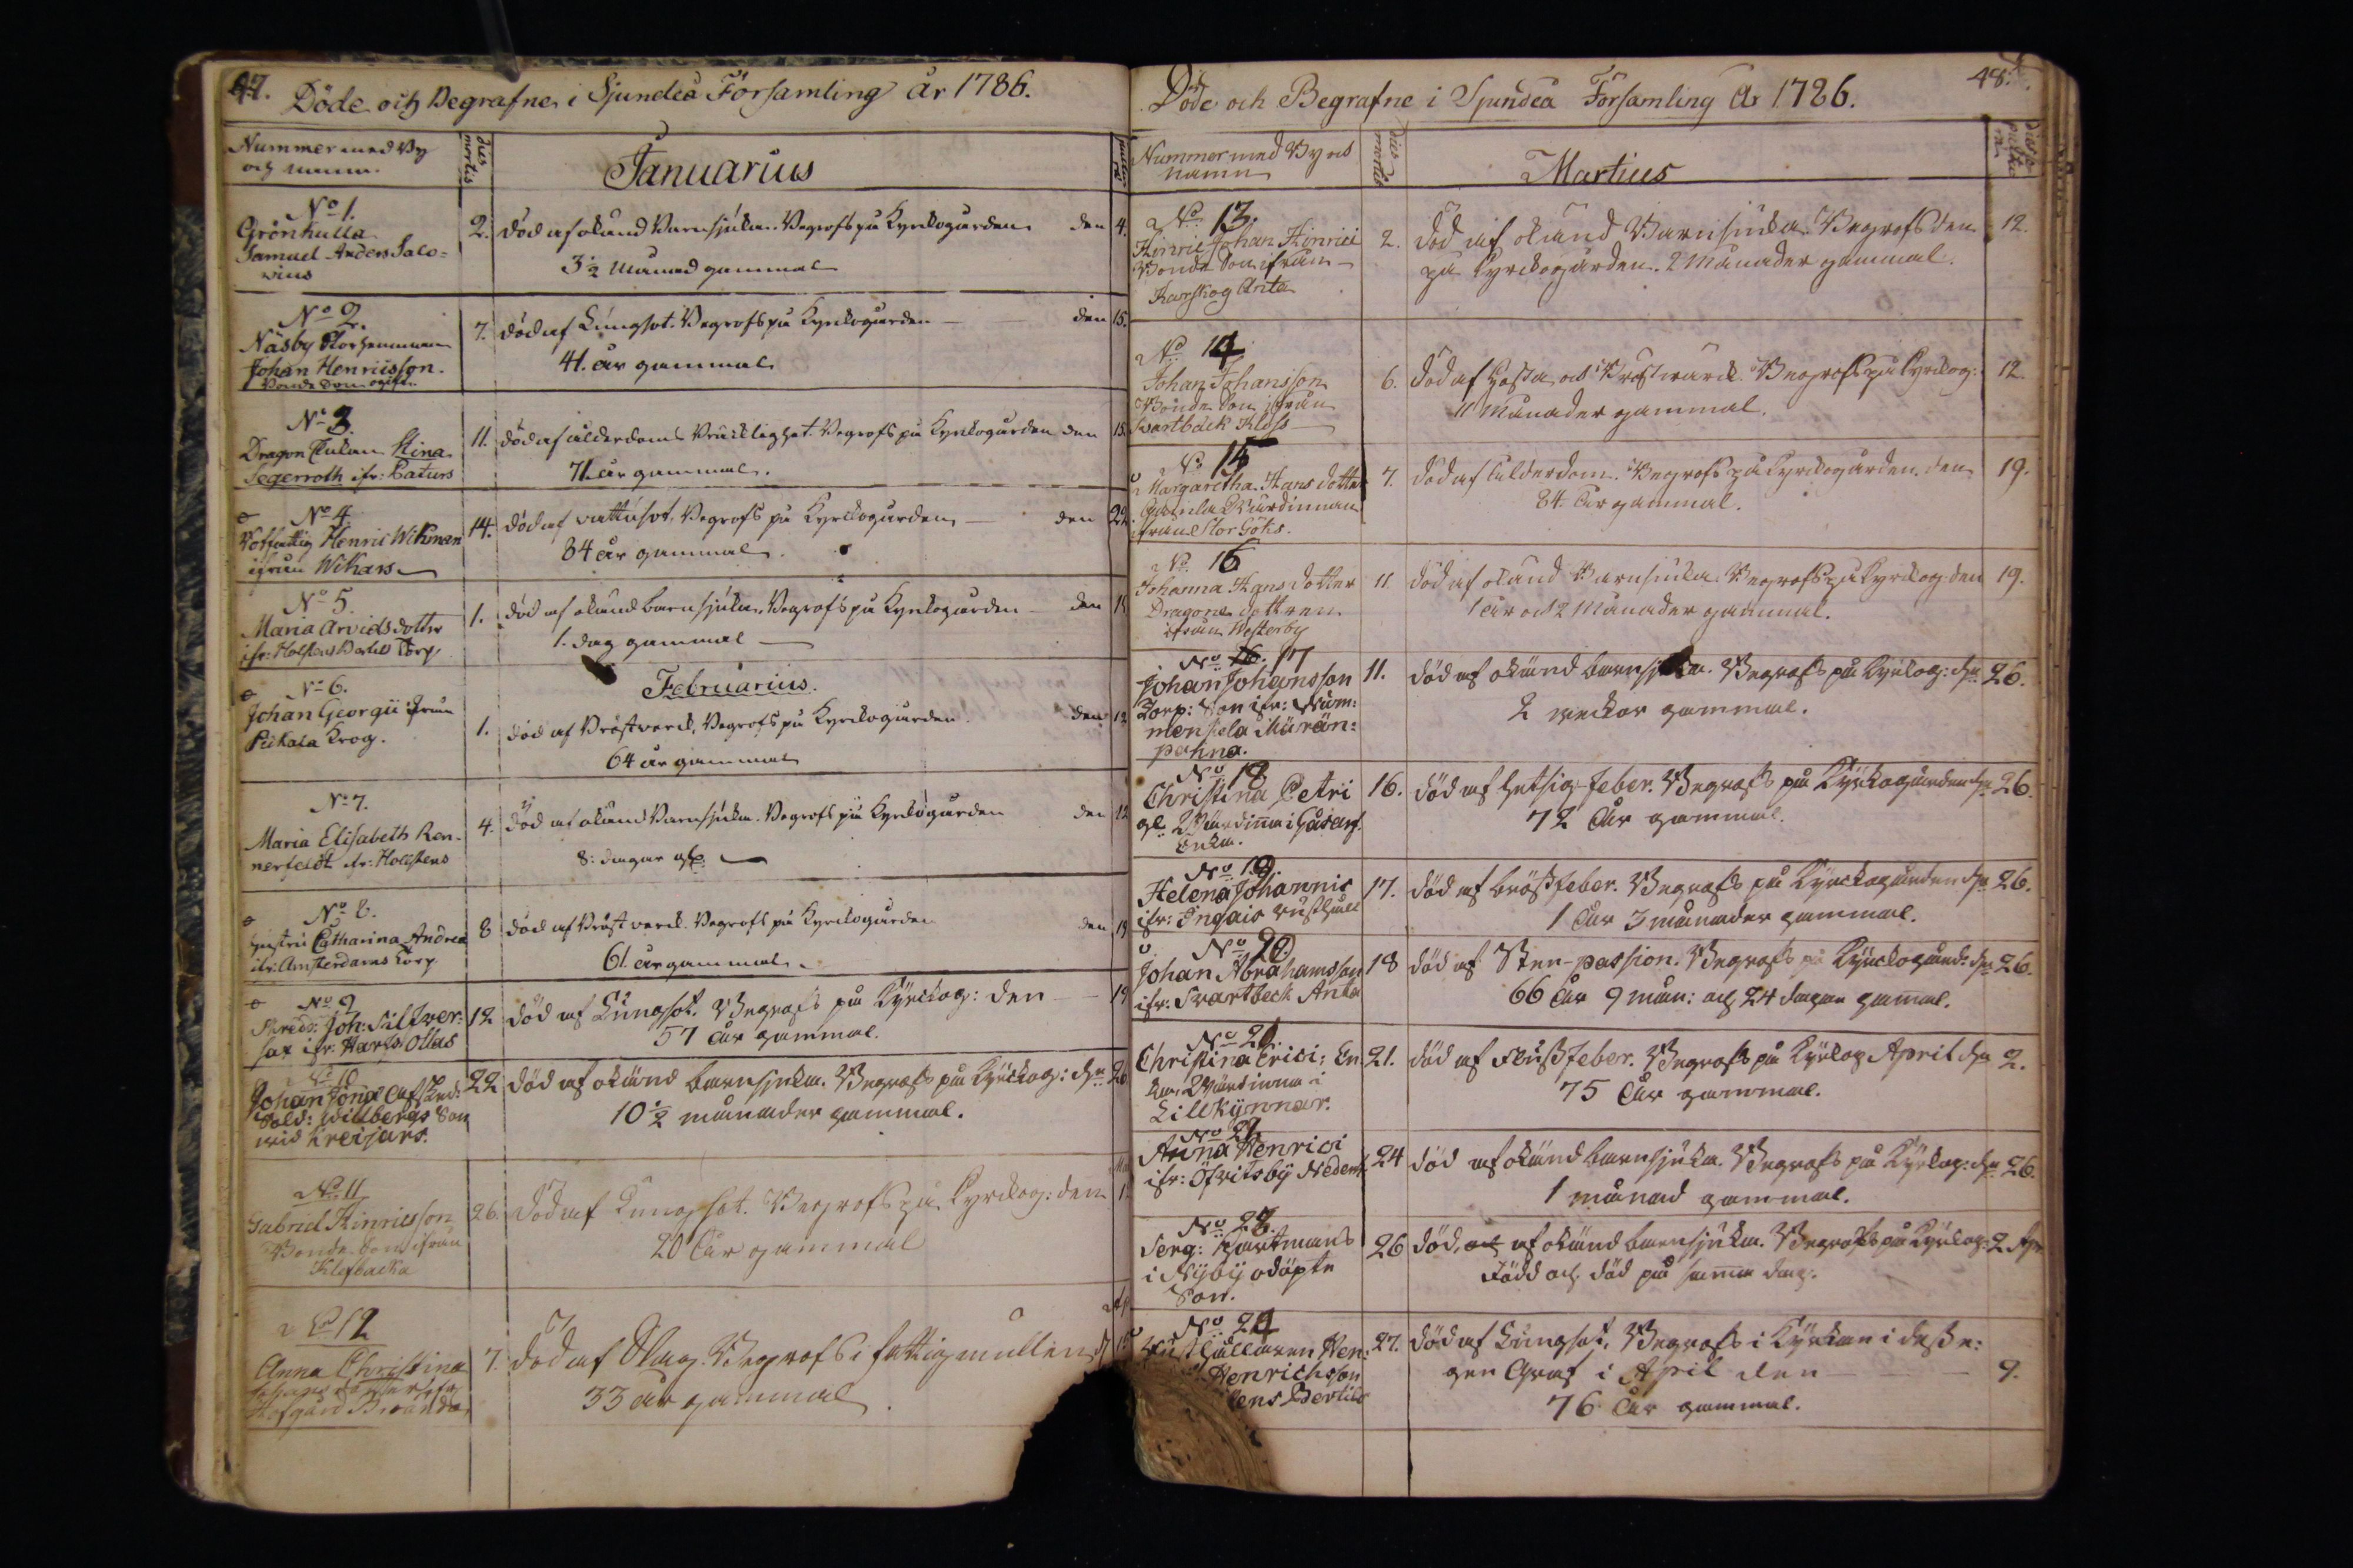 47.
Döde och Begrafne i Sjundeå Församling År 1786.
Nummer med By
och namn.
dies
mortis
Januarius
No 1.
Grönkulla
Samuel Anders Salo=
vius
2.
död af okänd Barnsjuka. Begrofs på Kyrkogården den 4.
3 1/2 Månad gammal
No 2.
Näsby
Johan Henricsson.
Bonde Son ogift.
7.
död af Lungsot. Begrofs på Kyrkogården den 15.
41. år gammal
No 3.
Dragon Enkan Stina
Segerroth ifr: Paturs
11.
död af ålderdoms Bräcklighet. Begrofs på Kyrkogården den 15.
71 år gammal.
No 4.
Henric Wikman
ifrån Wikars
14.
död af vattusot. Begrofs på Kyrkogården den 22.
84 år gammal.
No 5.
Maria Arvids dotter
ifr: Holstens Bertils Torp.
1.
död af okänd barnsjuka. Begrofs på Kyrkogården den 15
1. dag gammal
Februarius.
No 6.
Johan Georgii ifrån
Pickala Krog.
1.
död af Bröstverck. Begrofs på Kyrkogården den 12
64 år gammal
No 7.
Maria Elisabeth Ren-
nerfeldt ifr: Hollstens
4.
död af okänd Barnsjuka. Begrofs på Kyrkogården den 12
8: dagar gl:
No 8.
Hustru Catharina Andrea
ifr: Amsterdams torp
8
död af Bröst verck. Begrofs på Kyrkogården den 19
61. år gammal.
No 9
Joh: Silfver=
sax ifr: Harfs Ollas
12
död af Lungsot. Begrofs på Kyrckog: den 19
57 år gammal.
No 10
Johan Jonæ Afsked:
Sold: Willbergs Son
wid Kreijars.
22
död af okänd barnsjuka. Begrofs på Kyrckog: dn 26
10 1/2 månader gammal.
No 11
Gabriel Hinricsson
Bonde Son ifrån
Klefbacka
26.
Död af Lungsot. Begrofs på Kyrckog: den
20 år gammal
No 12
Anna Christina
Hofgård
7.
död af Slag. Begrofs i fattigmullen
33 år gammal
48.
Döde och Begrafne i Sjundeå Församling År 1786.
Nummer med By och
namn
dies
mortis
Martius
No 13.
Hinric Johan Hinrici
Bonde Son ifrån
Karskog Anta
2.
död af okänd Barnsjuka. Begrofs den 12.
på Kyrckogården. 2 Månader gammal.
No 14
Johan Johansson
Bonde Son ifrån
Svartbäck Klåss
6.
död af Hosta och Bröstwärck. Begrofs på Kyrckog: 12.
11 Månader gammal.
No 15
Margaretha Hans dotter
Gamla Wärdinnan
ifrån Stor Göks.
7.
död af ålderdom. Begrofs på Kyrckogården den 19.
84. år gammal.
No 16
Johanna Hans dotter
Dragone dottren
ifrån Westerby
11.
död af okänd Barnsjuka. Begrofs på Kyrckog: den 19.
1 år och 2 Månader gammal.
No 16. 17
Johan Johansson
Torp: Son ifr:
pahna.
11.
död af okänd barnsjuka. Begrofs på Kyrckog: dn 26.
2 weckor gammal.
No 18
Christina Petri
gl: Wärdinna i Gårdary.
Enka.
16.
död af hetsig feber. Begrofs på Kyrckogården dn 26.
72 år gammal.
No 19
Helena Johannis
ifr: Ingais rusthåll
17.
död af bröstfeber. Begrofs på Kyrckogården dn 26.
1 år 3 månader gammal.
No 20
Johan Abrahamsson
ifr: Svartbeck Anta
18
död af Sten-passion. Begrofs på Kyrckogård: dn 26.
66 år 9 mån: och 24 dagar gammal.
No 21
Christina Erici: En
ka, Wärdinna i
Lillkynnar.
21.
död af Flussfeber. Begrofs på Kyrckog April dn 2.
75 år gammal.
No 22
Anna Henrici
ifr: Öfvitsby Nedem.
24
död af okänd barnsjuka. Begrofs på Kyrckog: dn 26.
1 månad gammal.
No 23
Serg: Hartmans
i Nyby odöpte
Son.
26
död, och af okänd barnsjuka. Begrofs på Kyrckog: 2 Apr
Född och död på samma dag.
No 24
Rusthållaren Hen:
Henrichsson
Bertils
27.
död af Lungsot. Begrofs i Kyrkan i dess e:
gen Graf i April den 9.
76 år gammal.